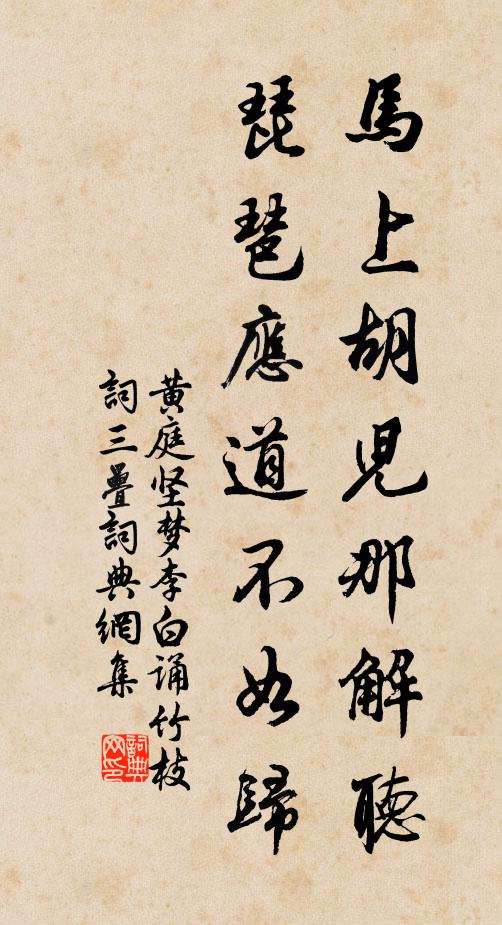 馬上胡兒那解聽
琵琶應道不如歸
黄庭坚梦李白诵竹枝
詞三疊詞典網集
詞典网印